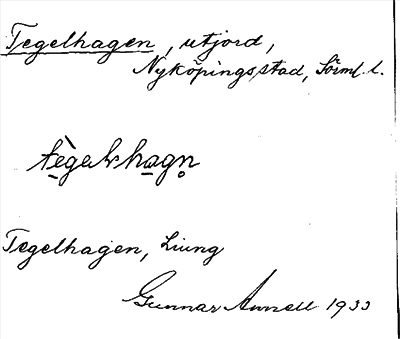 Tegelhagen, utjord,
Nyköpings stad, Sörml. l.
tègəlshagn̥
Tegelhagen, Ljung
Gunnar Annell 1933